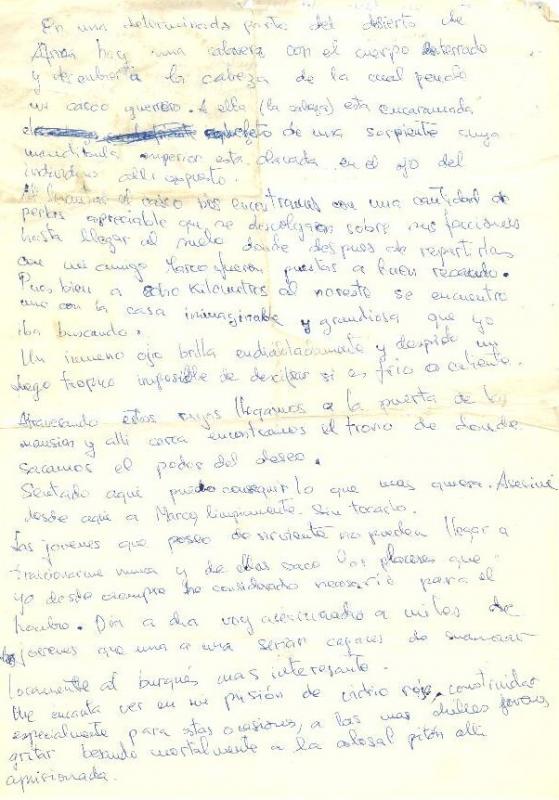 En una determinada parte del desierto de
hay una calavera con el cuerpo enterrado
y descubierta la cabeza de la cual pende
un casco guerrero. A ella (la cabeza) esta encaramada
esqueleto de una serpiente cuya
mandibula superior esta clavada en el ojo del
individuo alli expuesto.
Al levantar el casco nos encontramos con una cantidad de
perlas apreciable que se descolgaron sobre sus facciones
hasta llegar al suelo donde despues de repartirlas
con mi amigo Marco fueron puestas a buen recaudo.
Pues bien a ocho kilometros al noreste se encuentra
uno con la casa inimaginable y grandiosa que yo
iba buscando.
Un inmenso ojo brilla endiabladamente y despide un
fuego tropico imposible de decifrar si es frio o caliente.
Atravesando estos rayos llegamos a la puerta de la
mansion y alli cerca encontramos el trono de donde
sacamos el poder del deseo.
Sentado aqui puedo conseguir lo que mas quiera. Asesiné
desde aqui a Marco limpiamente. Sin tocarlo.
Las jovenes que poseo de sirviente no pueden llegar a
traicionarme nunca y de ellas saco los placeres que
yo desde siempre he considerado necesario para el
hombre. Dia a dia voy asesinando a miles de
jovenes que una a una serian capaces de enamorar
locamente al burgués mas interesante.
Me encanta ver en mi prisión de vidrio rojo, construida
especialmente para estas ocasiones, a las mas dulces jovenes
gritar besando mortalmente a la colosal pitón alli
aprisionada.